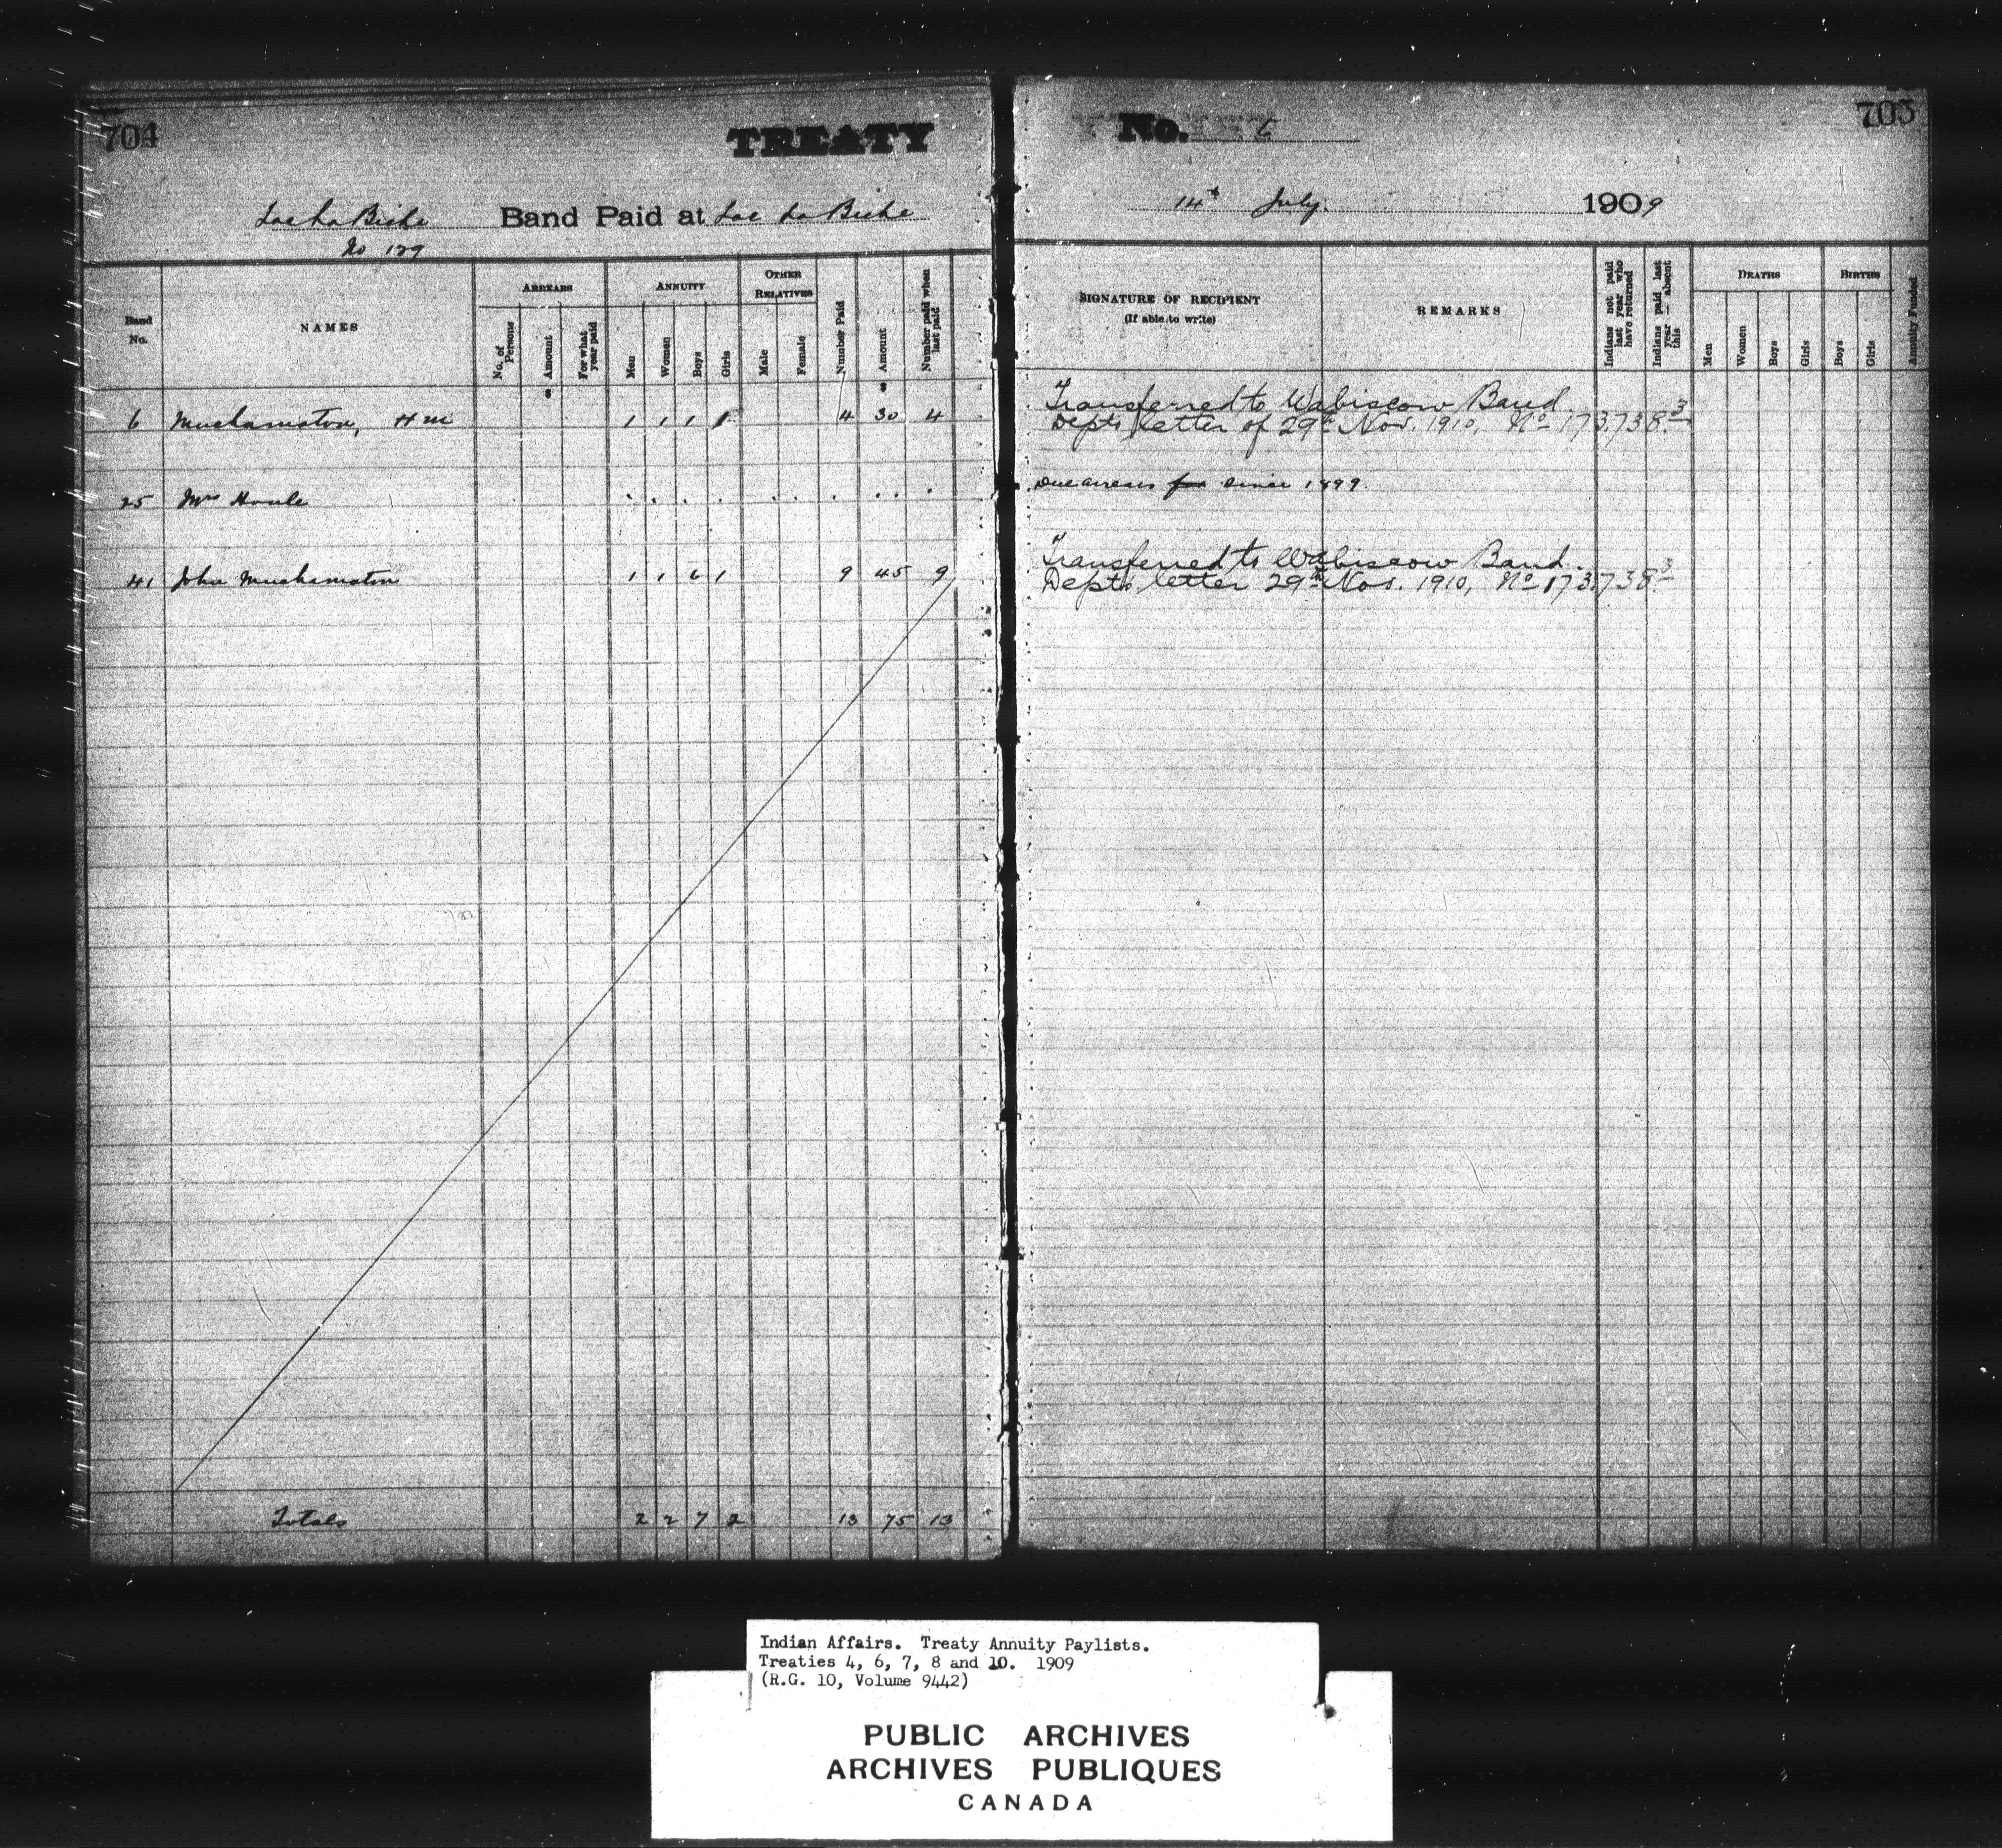 704
TREATY
Lac La Biche Band Paid at Lac La Biche
No 129
Band No.
NAMES
ARREARS
No. of Persons
Amount
For what year paid
ANNUITY
Men
Women
Boys
Girls
OTHER RELATIVES
Male
Female
Number Paid
Amount
Number paid when last paid
6 Muchamiston, Hm 1 1 1 1 4 30 4
25 Mrs Houle
41 John Muchamiston 1 1 6 1 9 45 9
Totals 2 2 7 2 13 75 13
No. 6
705
14th July. 1909
SIGNATURE OF RECIPIENT
(If able to write)
REMARKS
Indians not paid last year who have returned
Indians paid last year — Absent this
DEATHS
Men
Women
Boys
Girls
BIRTHS
Boys
Girls
Annuity Funded
Transferred to Wabiscow Band.
Depts letter of 29th Nov. 1910, No 173,738.3
Due arrears for since 1899.
Transferred to Wabiscow Band.
Depts letter 29th Nov. 1910, No 173,738.3
Indian Affairs. Treaty Annuity Paylists.
Treaties 4, 6, 7, 8 and 10. 1909
(R.G. 10, Volume 9442)
PUBLIC ARCHIVES
ARCHIVES PUBLIQUES
CANADA